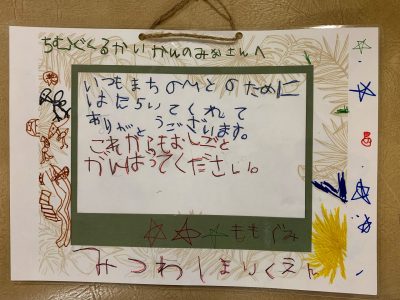 ちむぐくるかいかんのみなさんへ
いつもまちのひとのために
はたらいてくれて
ありがとうございます。
これからもおしごと
がんばってください。
ももぐみ
みつわほいくえん